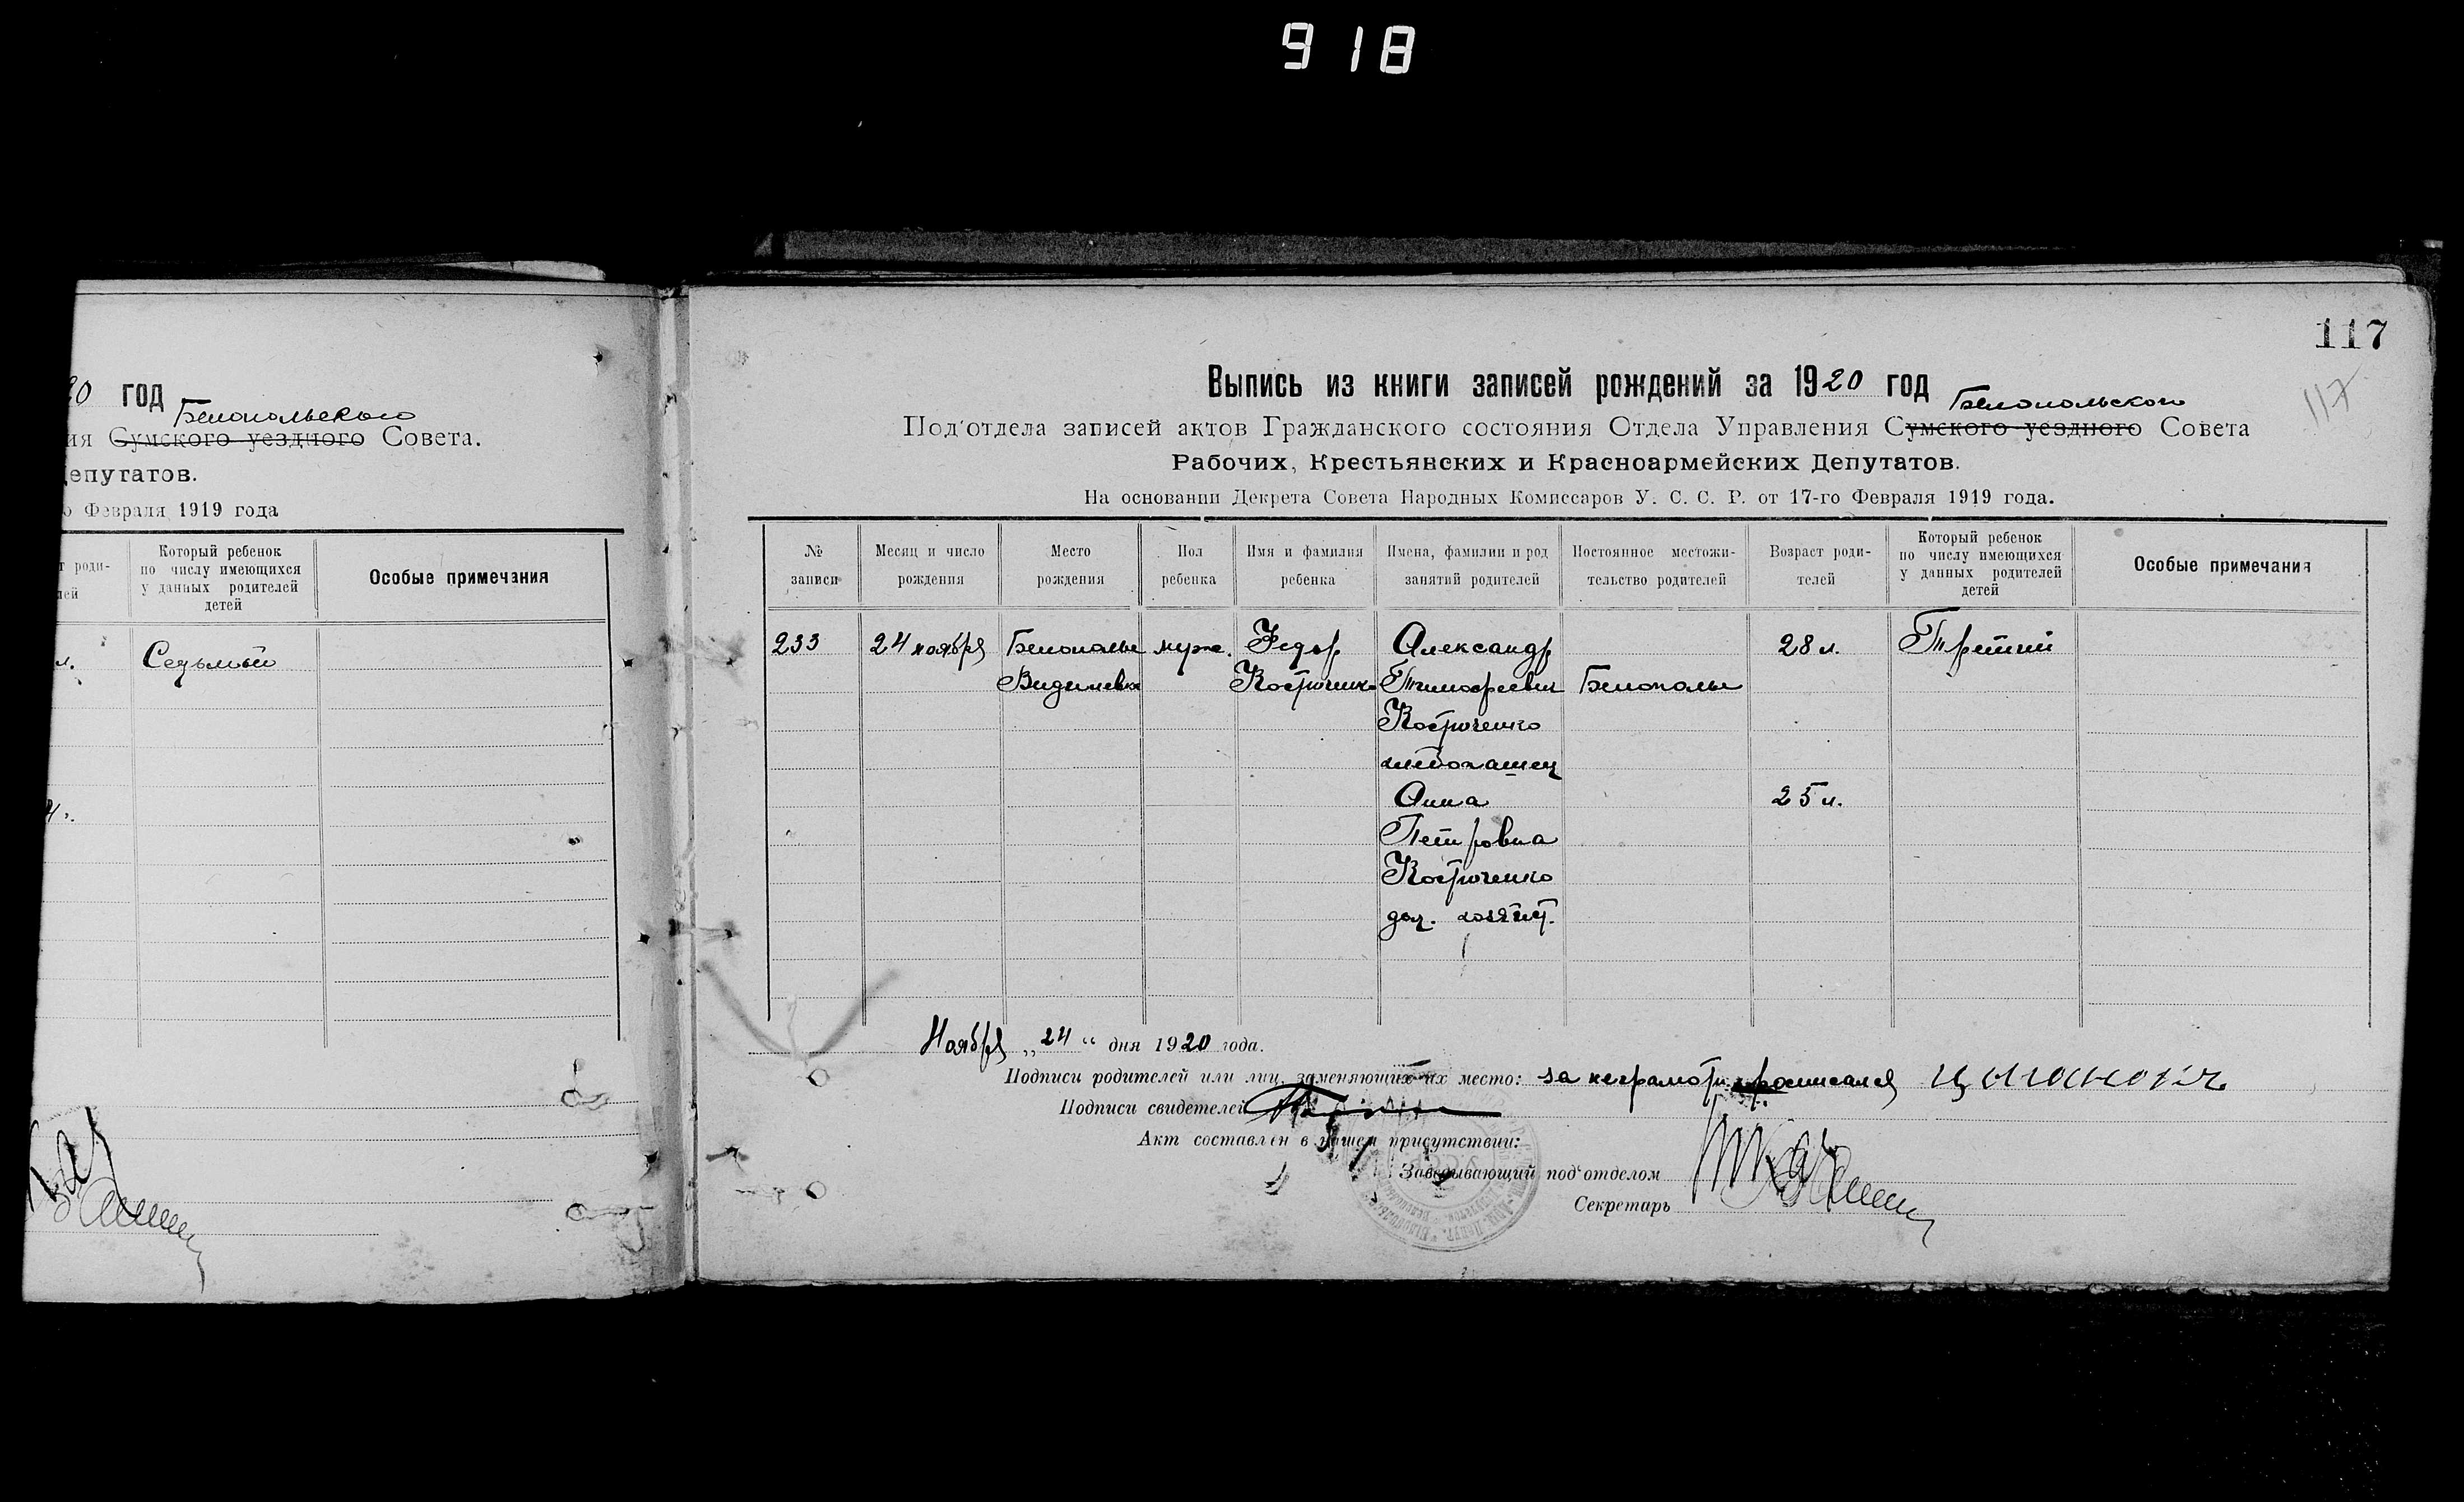 918
20 год
Белопольского
ия Сумского уездного Совета.
Депутатов.
о Февраля 1919 года
т роди-
лей
Который ребенок
по числу имеющихся
у данных родителей
детей
Особые примечания
л.
Седьмый
117
117
Выпись из книги записей рождений за 1920 год
Белопольского
Под'отдела записей актов Гражданского состояния Отдела Управления Сумского уездного Совета
Рабочих, Крестьянских и Красноармейских Депутатов.
На основании Декрета Совета Народных Комиссаров У. С. С. Р. от 17-го Февраля 1919 года.
№
записи
Месяц и число
рождения
Место
рождения
Пол
ребенка
Имя и фамилия
ребенка
Имена, фамилии и род
занятий родителей
Постоянное местожи-
тельство родителей
Возраст роди-
телей
Который ребенок
по числу имеющихся
у данных родителей
детей
Особые примечания
233
24 ноября
Белополье
муж.
Федор
Костюченко
Александр
Тимофеевич
Костюченко
хлебопашец
Анна
Петровна
Костюченко
дом. хозяйст.
Белополье
28 л.
25 л.
Третий
Ноября „ 24 “ дня 1920 года.
Подписи родителей или лиц, заменяющих их место: за неграмотн. росписался
Подписи свидетелей
Акт составлен в нашем присутствии:
Заведывающий под'отделом
Секретарь